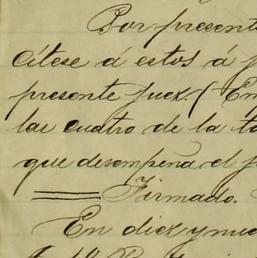 Por present
Cítese á estos á p
presente Juez. (Em
las cuatro de la ta
que desempeña el j
Firmado.
En diez y nue